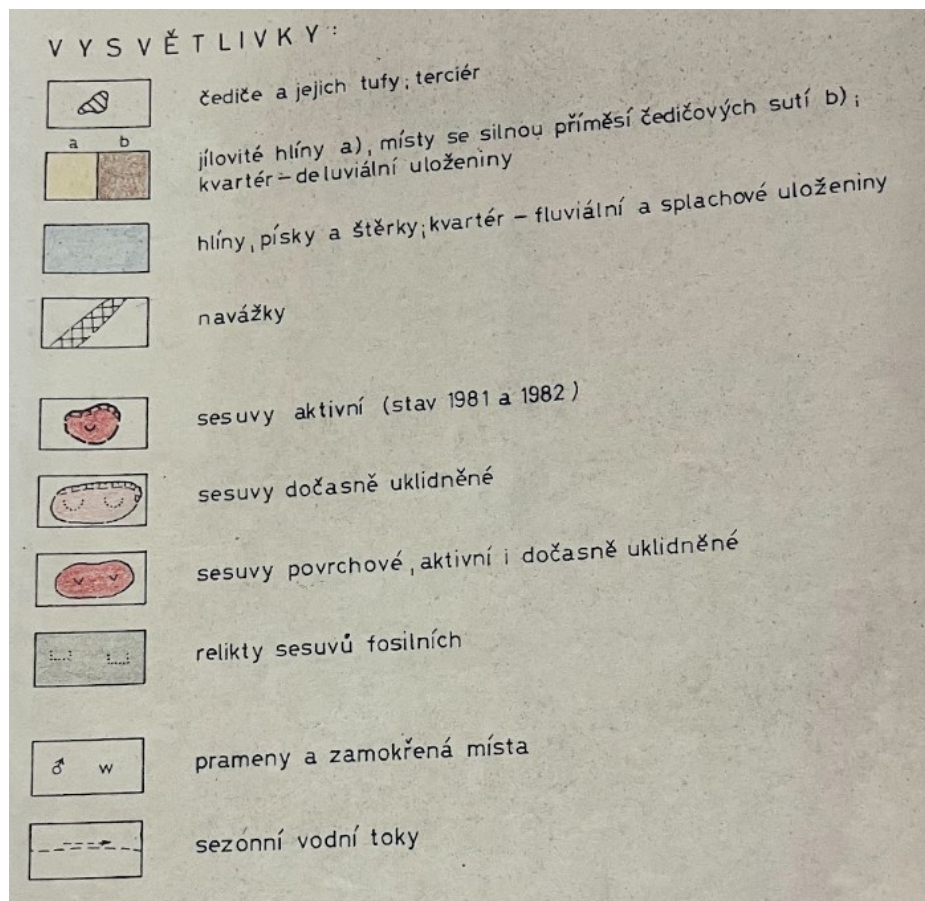 VYSVĚTLIVKY:
čediče a jejich tufy; terciér
a b
jílovité hlíny a), místy se silnou příměsí čedičových sutí b);
kvartér – deluviální uloženiny
hlíny, písky a štěrky; kvartér – fluviální a splachové uloženiny
navážky
sesuvy aktivní (stav 1981 a 1982)
sesuvy dočasně uklidněné
sesuvy povrchové, aktivní i dočasně uklidněné
relikty sesuvů fosilních
w
prameny a zamokřená místa
sezónní vodní toky